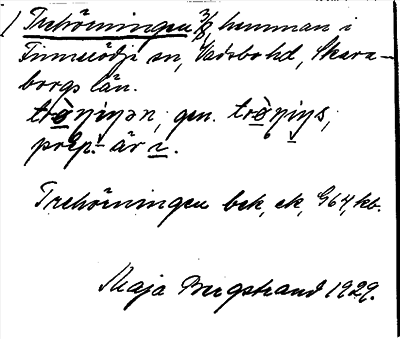 1) Trehörningen 3/8, hemman i
Finnerödja sn, Vadsbo hd, Skara-
borgs län.
trø̀ŋiŋən, gen. trø̀ŋiŋs;
prep. är i.
Trehörningen bek, ek, G64, kb.
Maja Bergstrand 1929.